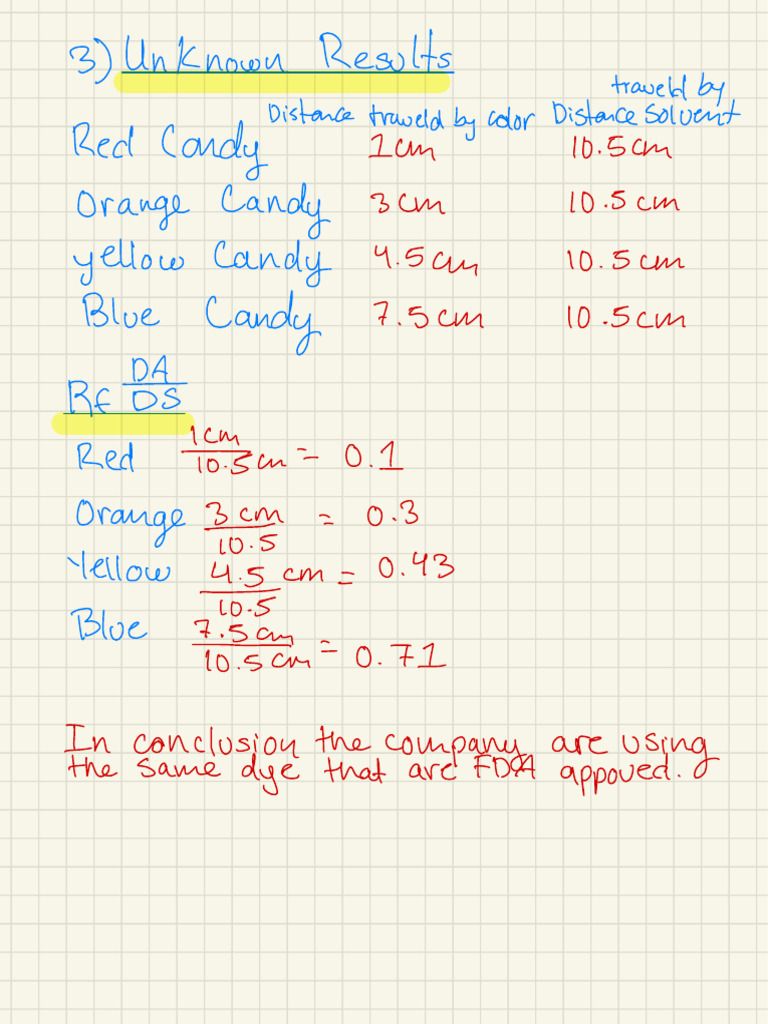 3) Unknown Results
traveld by
Distance traveld by color Distance Solvent
Red Candy 1cm 10.5cm
Orange Candy 3cm 10.5cm
yellow Candy 4.5cm 10.5cm
Blue Candy 7.5cm 10.5cm
Rf DA/DS
Red 1cm/10.5cm = 0.1
Orange 3cm/10.5 = 0.3
Yellow 4.5/10.5 cm = 0.43
Blue 7.5cm/10.5cm = 0.71
In conclusion the company are using
the same dye that are FDA appoved.